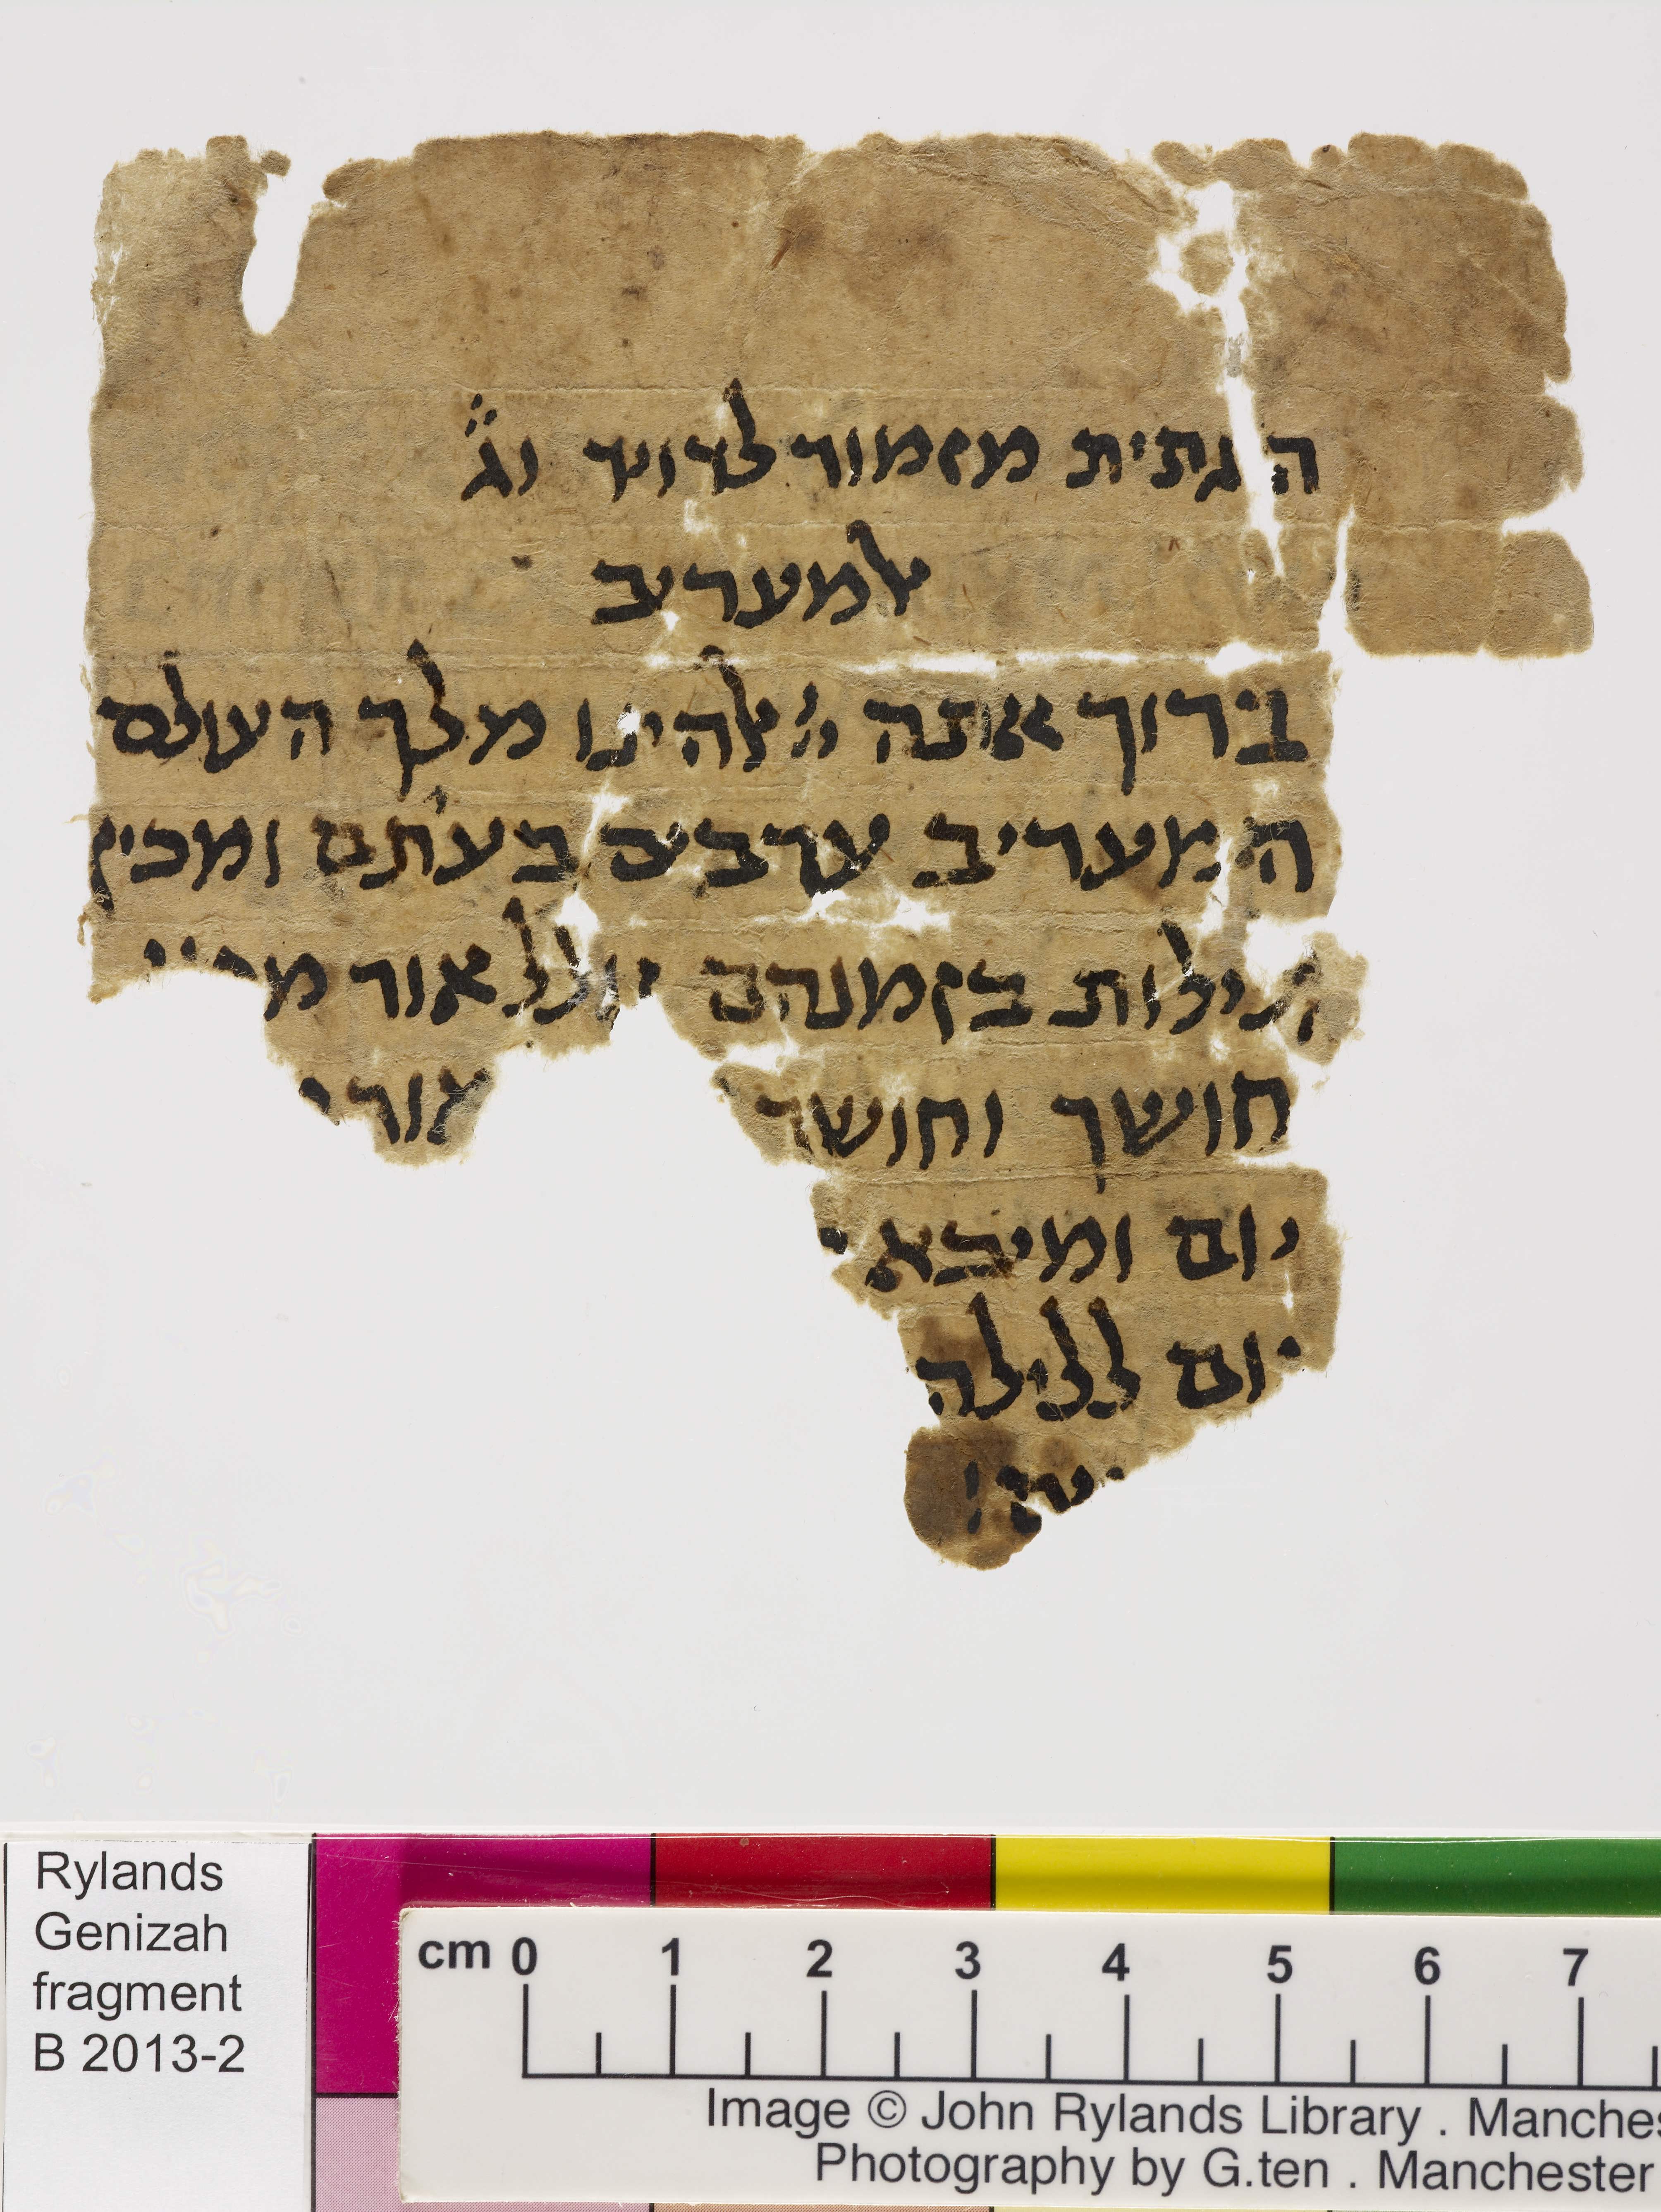 הגתית מזמור לדויד וג
אלמעריב
ברוך אתה יי אלהינו מלך העולם
המעריב ערבים בעתם ומכין
לילות בזמנהם אור
חושך וחושך אור
יום ומיבא
יום ללילה
Rylands
Genizah
fragment
B 2013-2
cm 0 1 2 3 4 5 6 7
Image © John Rylands Library . Manches
Photography by G.ten . Manchester